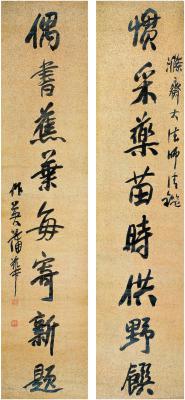 滌齋大法師清鑑
慣采藥苗時供野饌
偶書蕉葉每寄新題
作英蒲華